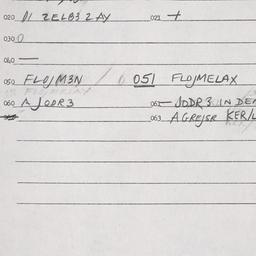 020 DI ZELB3 ZAY 021 +
030 0
040 —
050 FLOJM3N 051 FLOJMELAX
060 A JODR3 061 — JODR3 IN DEN
063 AGREJSR KER/L